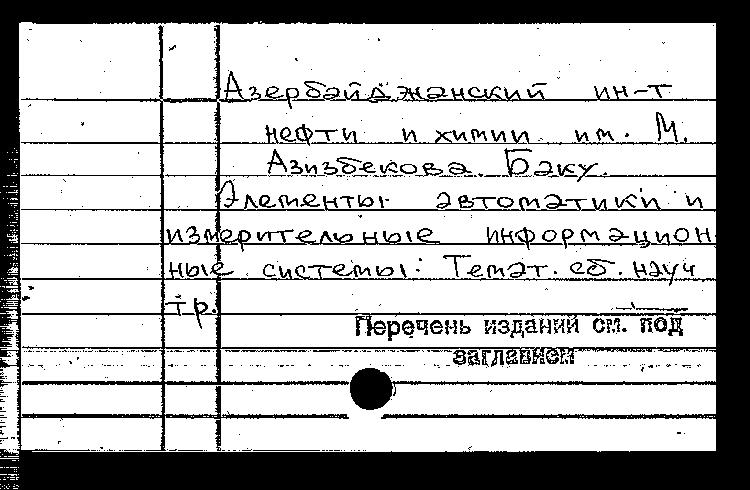 Азербайджанский ин-т
нефти и химии им. М.
Азизбекова. Баку.
Элементы автоматики и
измерительные информацион
ные системы: Темат. сб. науч
тр.
Перечень изданий см. под
заглавием